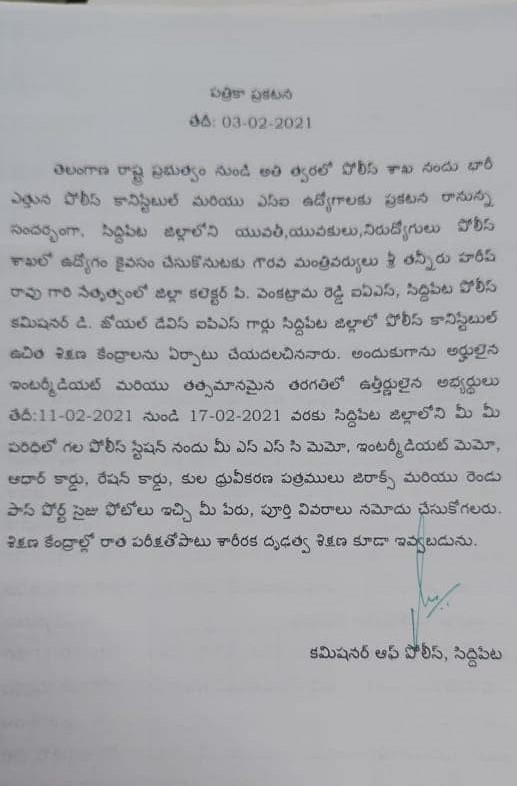 పత్రికా ప్రకటన
తేదీ: 03-02-2021
తెలంగాణ రాష్ట్ర ప్రభుత్వం నుండి అతి త్వరలో పోలీస్ శాఖ నందు భారీ
ఎత్తున పోలీస్ కానిస్టేబుల్ మరియు ఎస్ఐ ఉద్యోగాలకు ప్రకటన రానున్న
సందర్భంగా, సిద్దిపేట జిల్లాలోని యువతీ,యువకులు,నిరుద్యోగులు పోలీస్
శాఖలో ఉద్యోగం కైవసం చేసుకొనుటకు గౌరవ మంత్రివర్యులు శ్రీ తన్నీరు హరీష్
రావు గారి నేతృత్వంలో జిల్లా కలెక్టర్ పి. వెంకట్రామ రెడ్డి ఐఏఎస్, సిద్దిపేట పోలీస్
కమిషనర్ డి. జోయల్ డేవిస్ ఐపిఎస్ గార్లు సిద్దిపేట జిల్లాలో పోలీస్ కానిస్టేబుల్
ఉచిత శిక్షణ కేంద్రాలను ఏర్పాటు చేయదలచినారు. అందుకుగాను అర్హులైన
ఇంటర్మీడియట్ మరియు తత్సమానమైన తరగతిలో ఉత్తీర్ణులైన అభ్యర్థులు
తేదీ:11-02-2021 నుండి 17-02-2021 వరకు సిద్దిపేట జిల్లాలోని మీ మీ
పరిధిలో గల పోలీస్ స్టేషన్ నందు మీ ఎస్ ఎస్ సి మెమో, ఇంటర్మీడియట్ మెమో,
ఆధార్ కార్డు, రేషన్ కార్డు, కుల ధ్రువీకరణ పత్రములు జిరాక్స్ మరియు రెండు
పాస్ పోర్ట్ సైజు ఫోటోలు ఇచ్చి మీ పేరు, పూర్తి వివరాలు నమోదు చేసుకోగలరు.
శిక్షణ కేంద్రాల్లో రాత పరీక్షతోపాటు శారీరక దృఢత్వ శిక్షణ కూడా ఇవ్వబడును.
కమిషనర్ ఆఫ్ పోలీస్, సిద్దిపేట